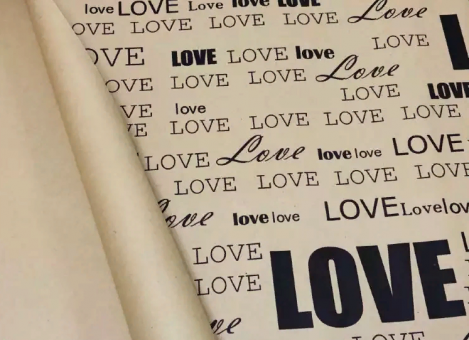 love LOVE Love love LOVE Love
OVE LOVE LOVE LOVE LOVE
OVE LOVE LOVE love
OVE LOVE LOVE Love
LOVE LOVE
VE love
VE LOVE LOVE LOVE LOVE
LOVE Love love love LOVE
LOVE LOVE LOVE LOVE
ove love love LOVE Love lov
LOVE
LOVE LOVE
ve